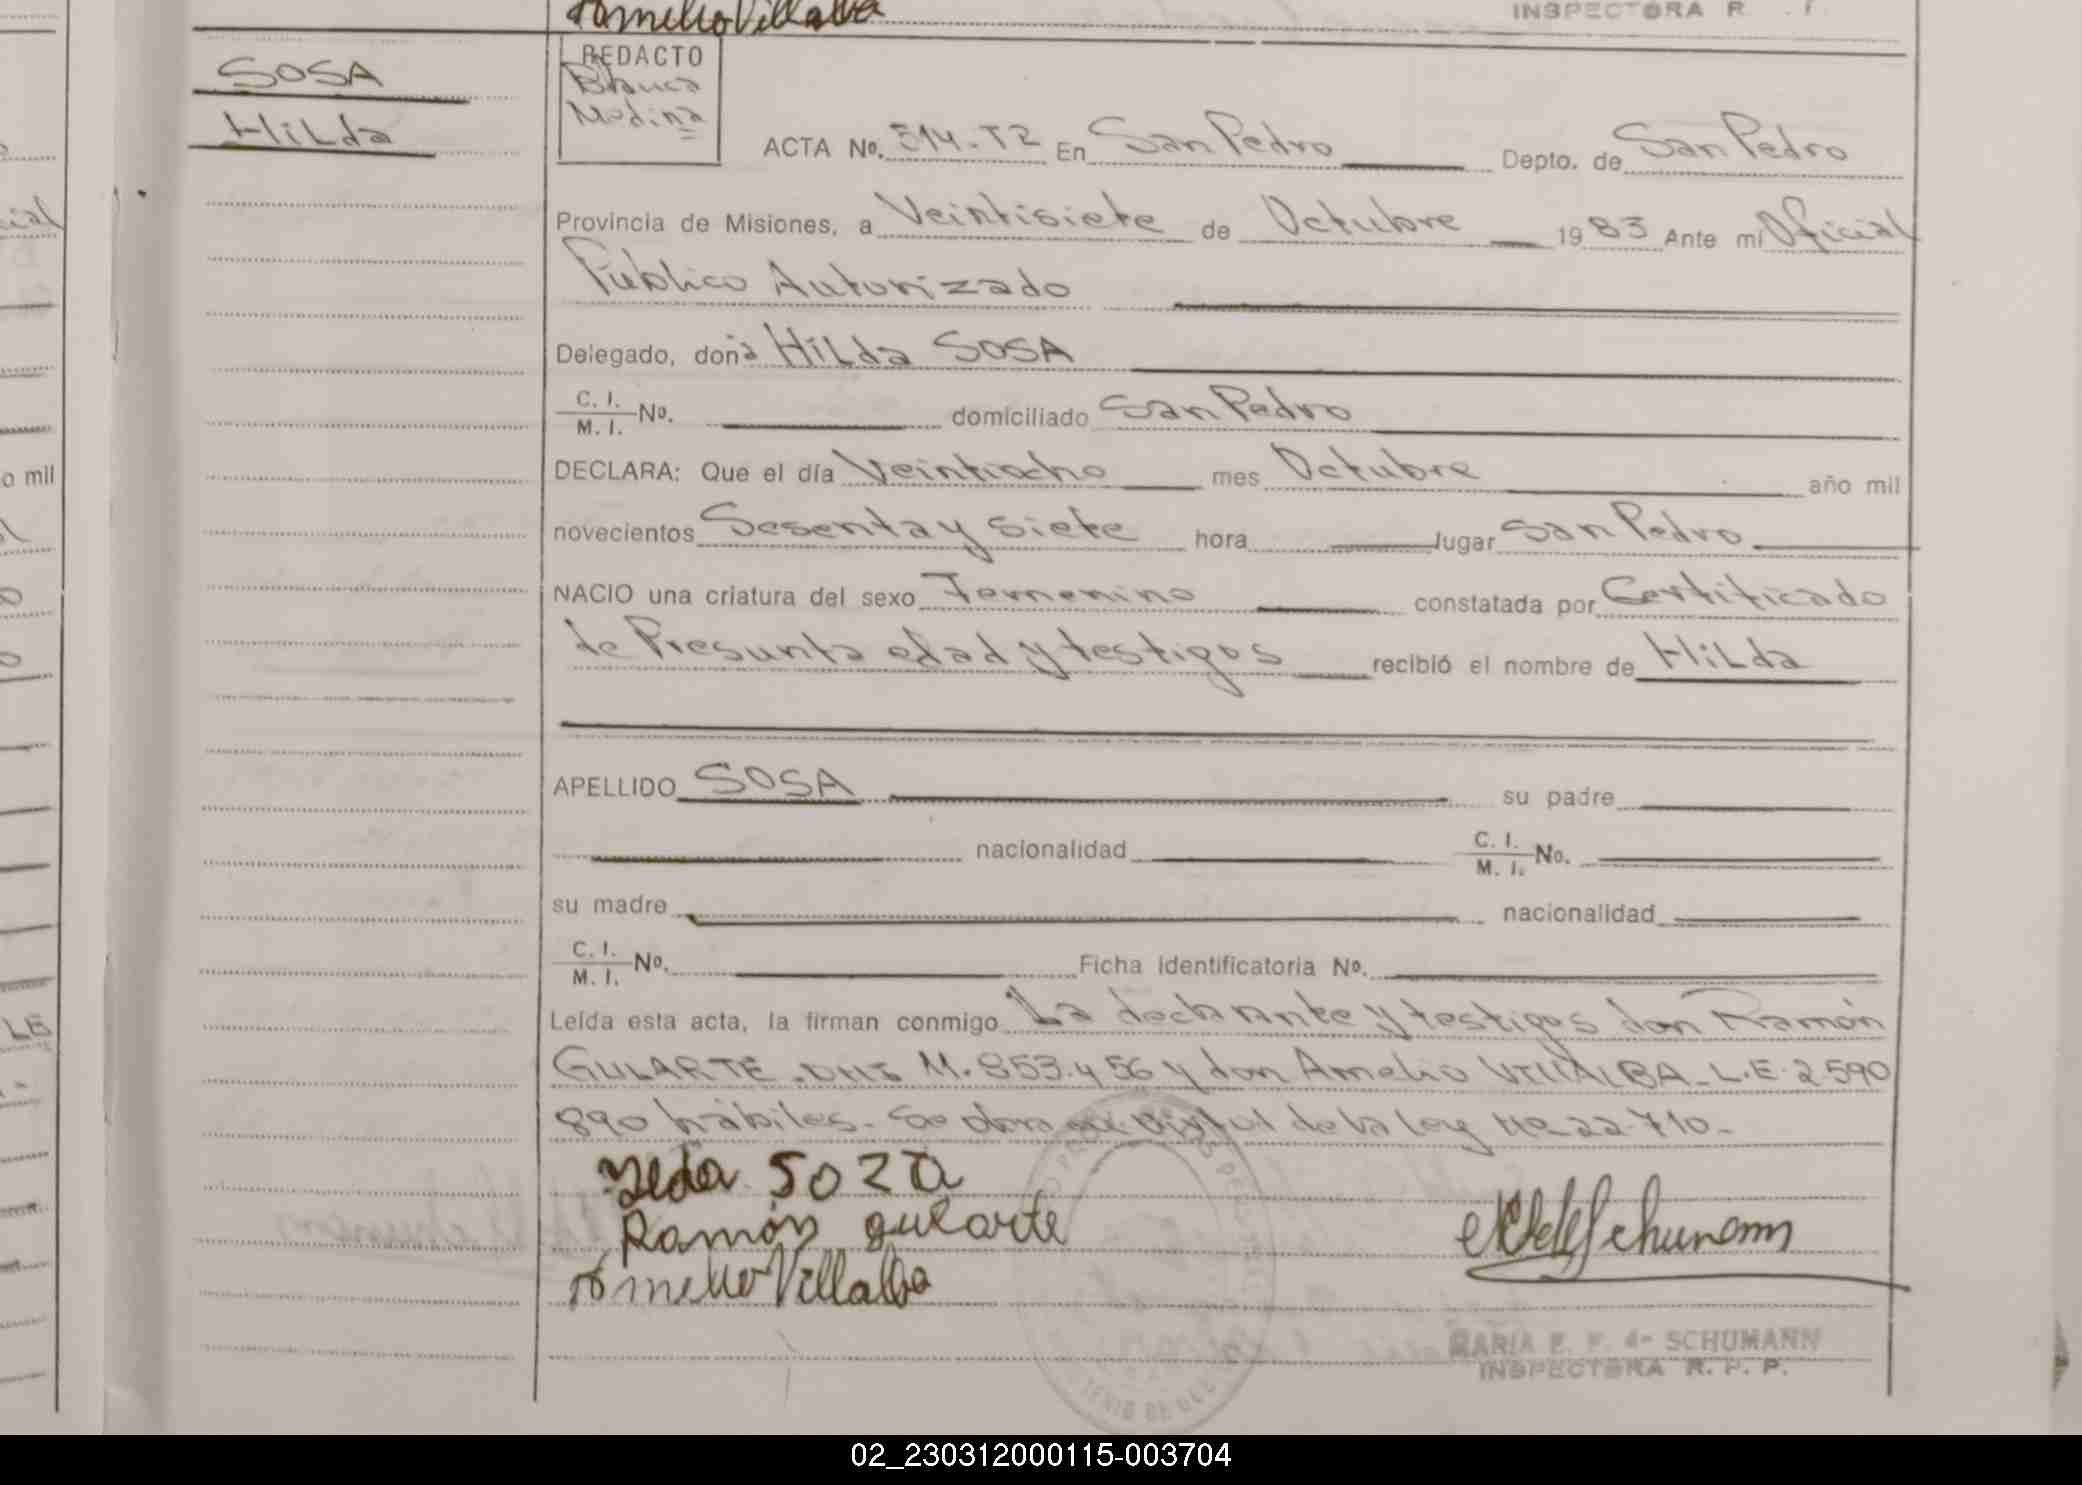 Amelio Villalba
INSPECTORA R.
SOSA
Hilda
REDACTO
Blanca
Medina
ACTA No. 514. T2 En San Pedro Depto. de San Pedro
Provincia de Misiones, a Veintisiete de Octubre 1983 Ante mi Oficial
Público Autorizado
Delegado, doña Hilda SOSA
C. I.
M. I. No. domiciliado San Pedro
DECLARA: Que el día Veintiocho mes Octubre año mil
novecientos Sesenta y siete hora lugar San Pedro
NACIO una criatura del sexo Femenino constatada por Certificado
de Presunta edad y testigos recibió el nombre de Hilda
APELLIDO SOSA su padre
nacionalidad C. I.
M. I. No.
su madre nacionalidad
C. I.
M. I. No. Ficha Identificatoria No.
Leída esta acta, la firman conmigo La declarante y testigos don Ramón
GULARTE. DNI M. 853.456 y don Amelio VILLALBA - L.E. 2.590
890 hábiles. - Se obra en virtud de la Ley Nº 22.710 -
SOZA
Ramón gularte
Amelio Villalba
Schumann
MARIA E. F. de SCHUMANN
INSPECTORA R. P. P.
o mil
LE
02_230312000115-003704